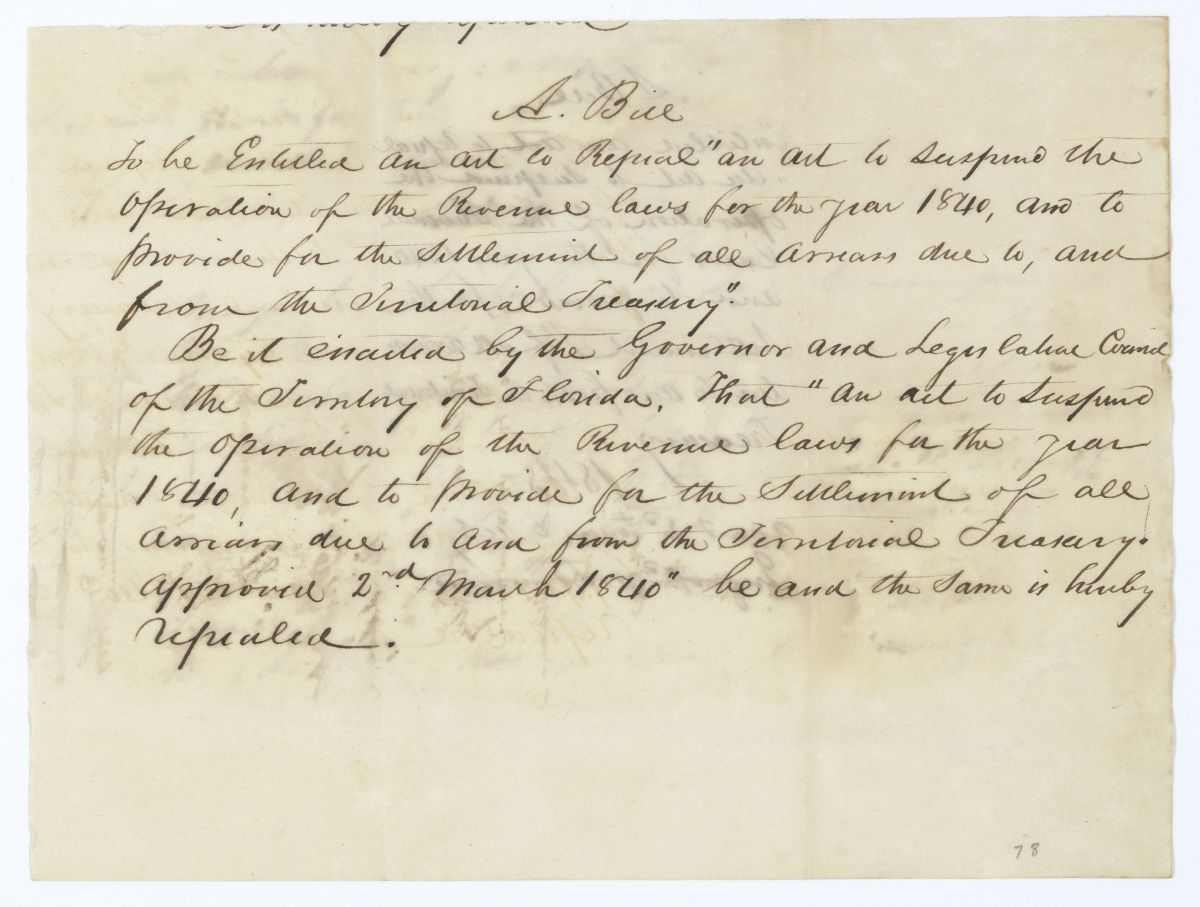 is hereby repealed
A. Bill
To be Entitled an act to Repeal "an act to suspend the
operation of the Revenue laws for the year 1840, and to
provide for the Settlement of all arrears due to, and
from the Territorial Treasury".
Be it enacted by the Governor and Legislative Council
of the Territory of Florida, That "an act to suspend
the operation of the Revenue laws for the year
1840, and to provide for the Settlement of all
arrears due to and from the Territorial Treasury.
approved 2nd March 1840" be and the same is hereby
repealed.
78